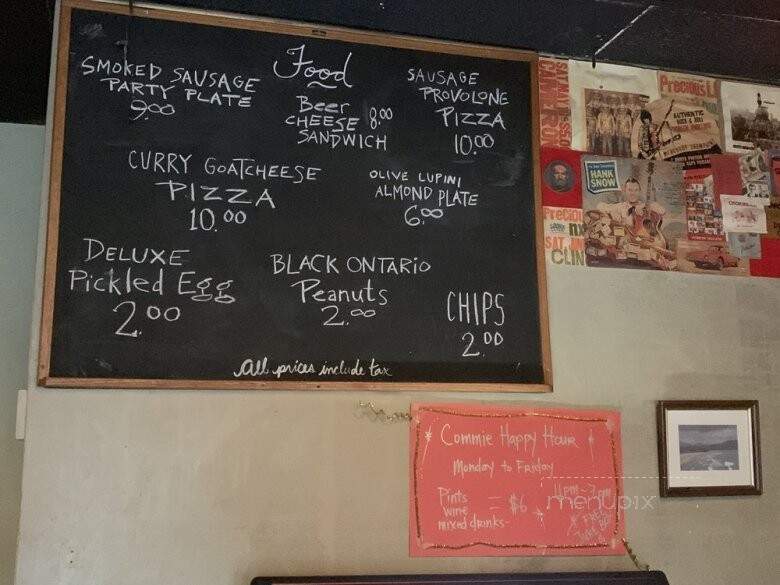 Food
SMOKED SAUSAGE
PARTY PLATE
9.00
Beer
CHEESE 8.00
SANDWICH
SAUSAGE
PROVOLONE
PIZZA
10.00
CURRY GOATCHEESE
PIZZA
10.00
OLIVE LUPINI
ALMOND PLATE
6.00
DELUXE
Pickled Egg
2.00
BLACK ONTARIO
Peanuts
2.00
CHIPS
2.00
All prices include tax
Precious
AUTHENTIC
HANK
SNOW
SAT
CLIN
Commie Happy Hour
Monday to Friday
Pints
wine
mixed drinks-
= $6
menupix